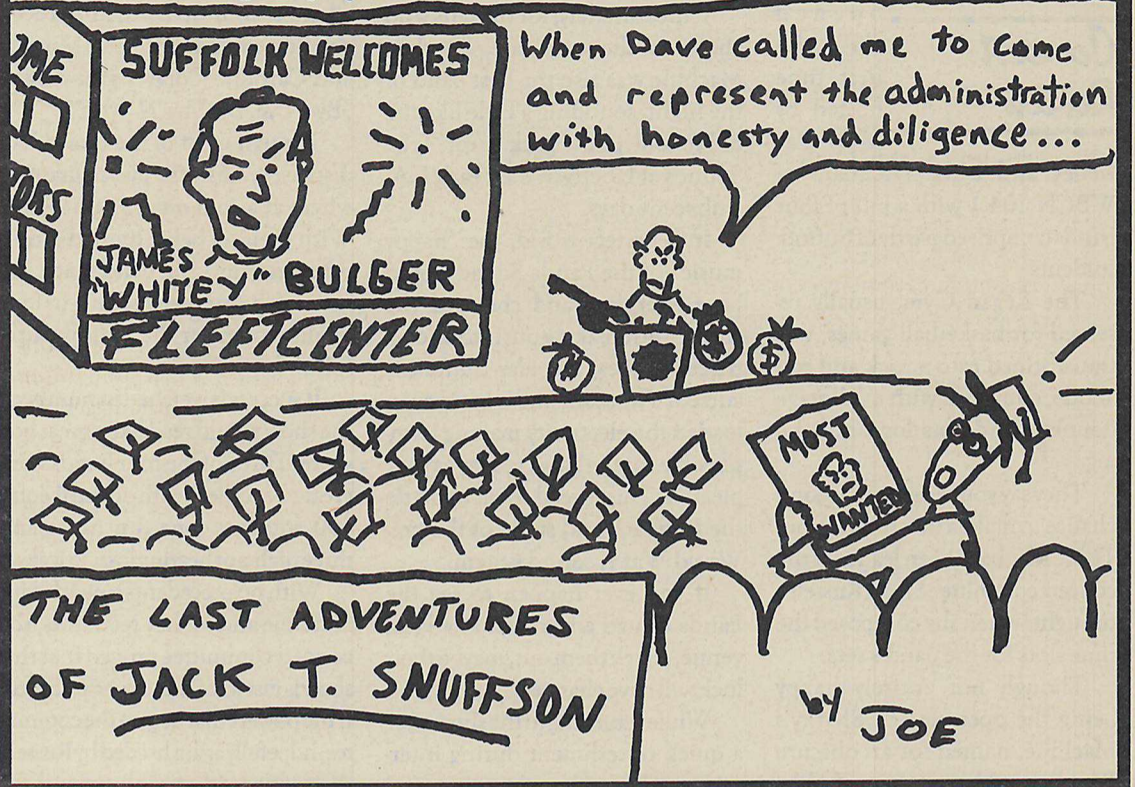 SUFFOLK WELCOMES
JAMES
"WHITEY" BULGER
FLEETCENTER
When Dave called me to come
and represent the administration
with honesty and diligence...
$
$
MOST
WANTED
THE LAST ADVENTURES
OF JACK T. SNUFFSON
by JOE